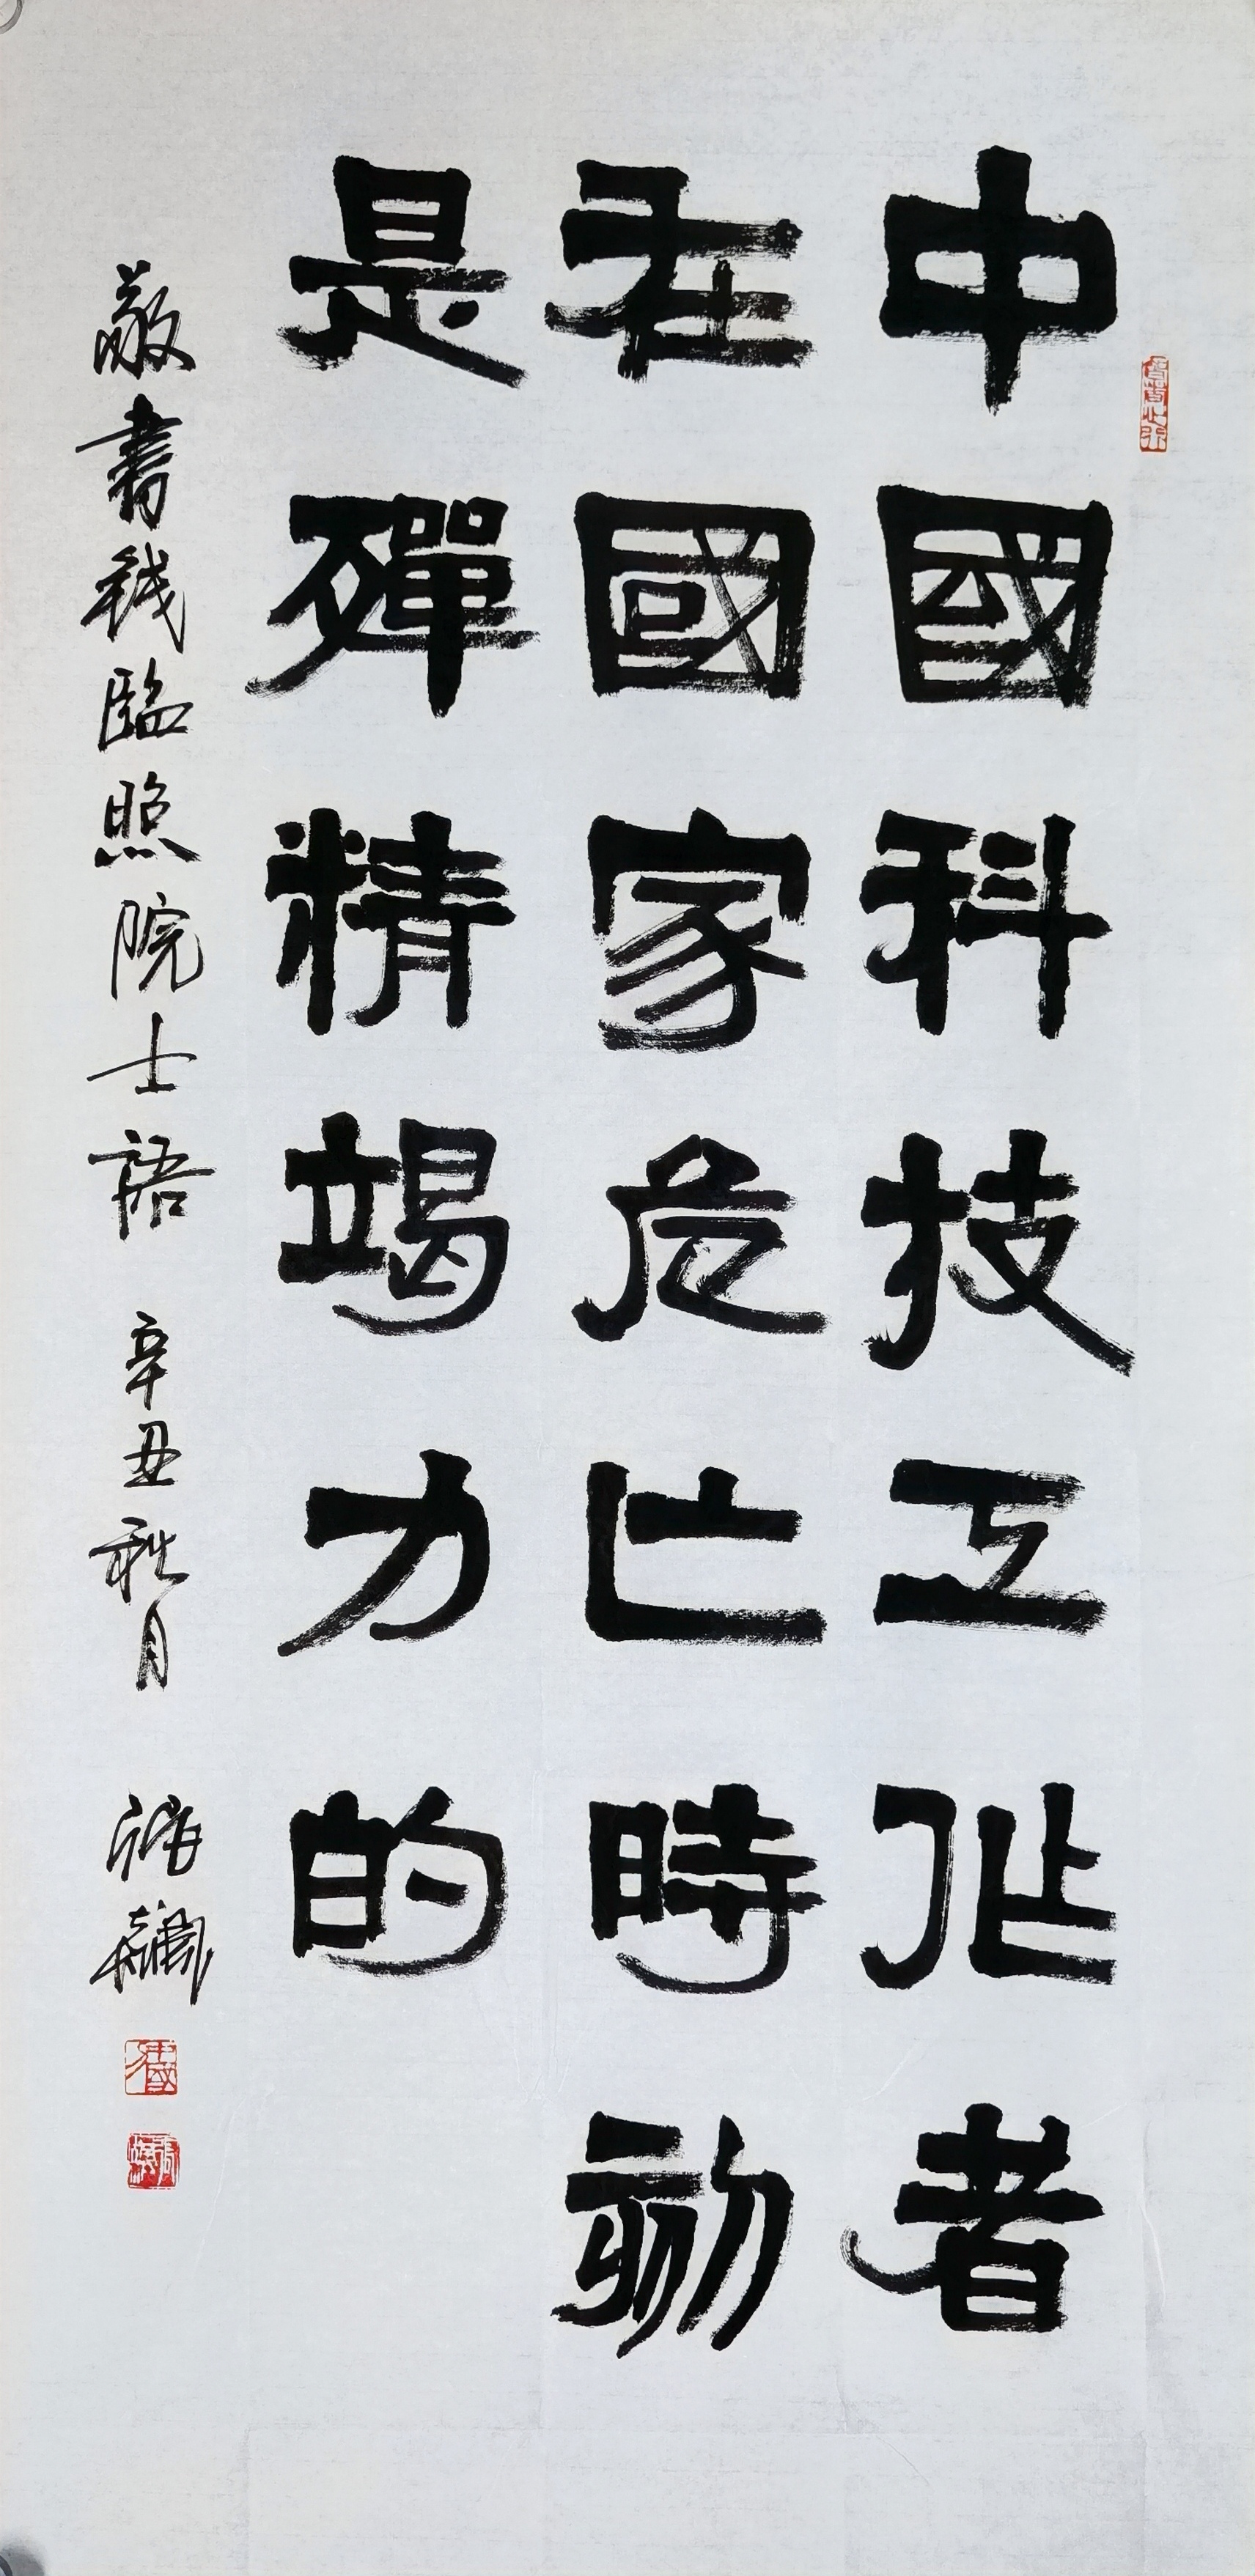 中國科技工作者
在國家危亡時刻
是殫精竭力的
敬書錢臨照院士語 辛丑秋月